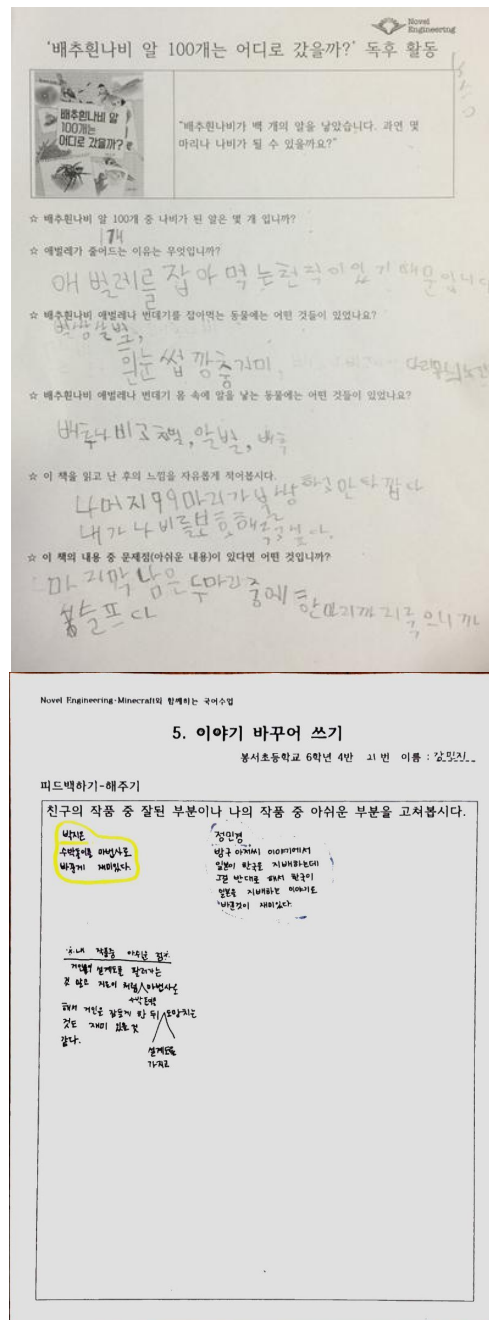 Novel
Engineering
'배추흰나비 알 100개는 어디로 갔을까?' 독후 활동
배추흰나비 알
100개는
어디로 갔을까?
"배추흰나비가 백 개의 알을 낳았습니다. 과연 몇
마리나 나비가 될 수 있을까요?"
☆ 배추흰나비 알 100개 중 나비가 된 알은 몇 개 입니까?
☆ 애벌레가 줄어드는 이유는 무엇입니까?
애벌레를 잡아 먹는 천적이 있기 때문입니다
☆ 배추흰나비 애벌레나 번데기를 잡아먹는 동물에는 어떤 것들이 있었나요?
흰눈썹깡충거미,
☆ 배추흰나비 애벌레나 번데기 몸 속에 알을 낳는 동물에는 어떤 것들이 있었나요?
배추나비고치벌, 알벌, 배추
☆ 이 책을 읽고 난 후의 느낌을 자유롭게 적어봅시다.
나머지 99마리가 불쌍하고 안타깝다
내가 나비를 보호해
☆ 이 책의 내용 중 문제점(아쉬운 내용)이 있다면 어떤 것입니까?
마지막 남은 두마리 중에 한마리까지 죽으니까
슬프다
Novel Engineering-Minecraft와 함께하는 국어수업
5. 이야기 바꾸어 쓰기
봉서초등학교 6학년 4반 21번 이름 : 강민지
피드백하기-해주기
친구의 작품 중 잘된 부분이나 나의 작품 중 아쉬운 부분을 고쳐봅시다.
박지은
수박돌이를 마법사로
바꾼게 재미있다.
정민경
방구 아저씨 이야기에서
일본이 한국을 지배하는데
그걸 반대로 해서 한국이
일본을 지배하는 이야기로
바꾼것이 재미있다.
※내 작품중 아쉬운 점※
설계도를 팔러가는
것 말고 지은이 처럼 마법사로
해서 거인을 잠들게 한 뒤 도망치는
것도 재미 있을 것
같다.
설계도를
가지고